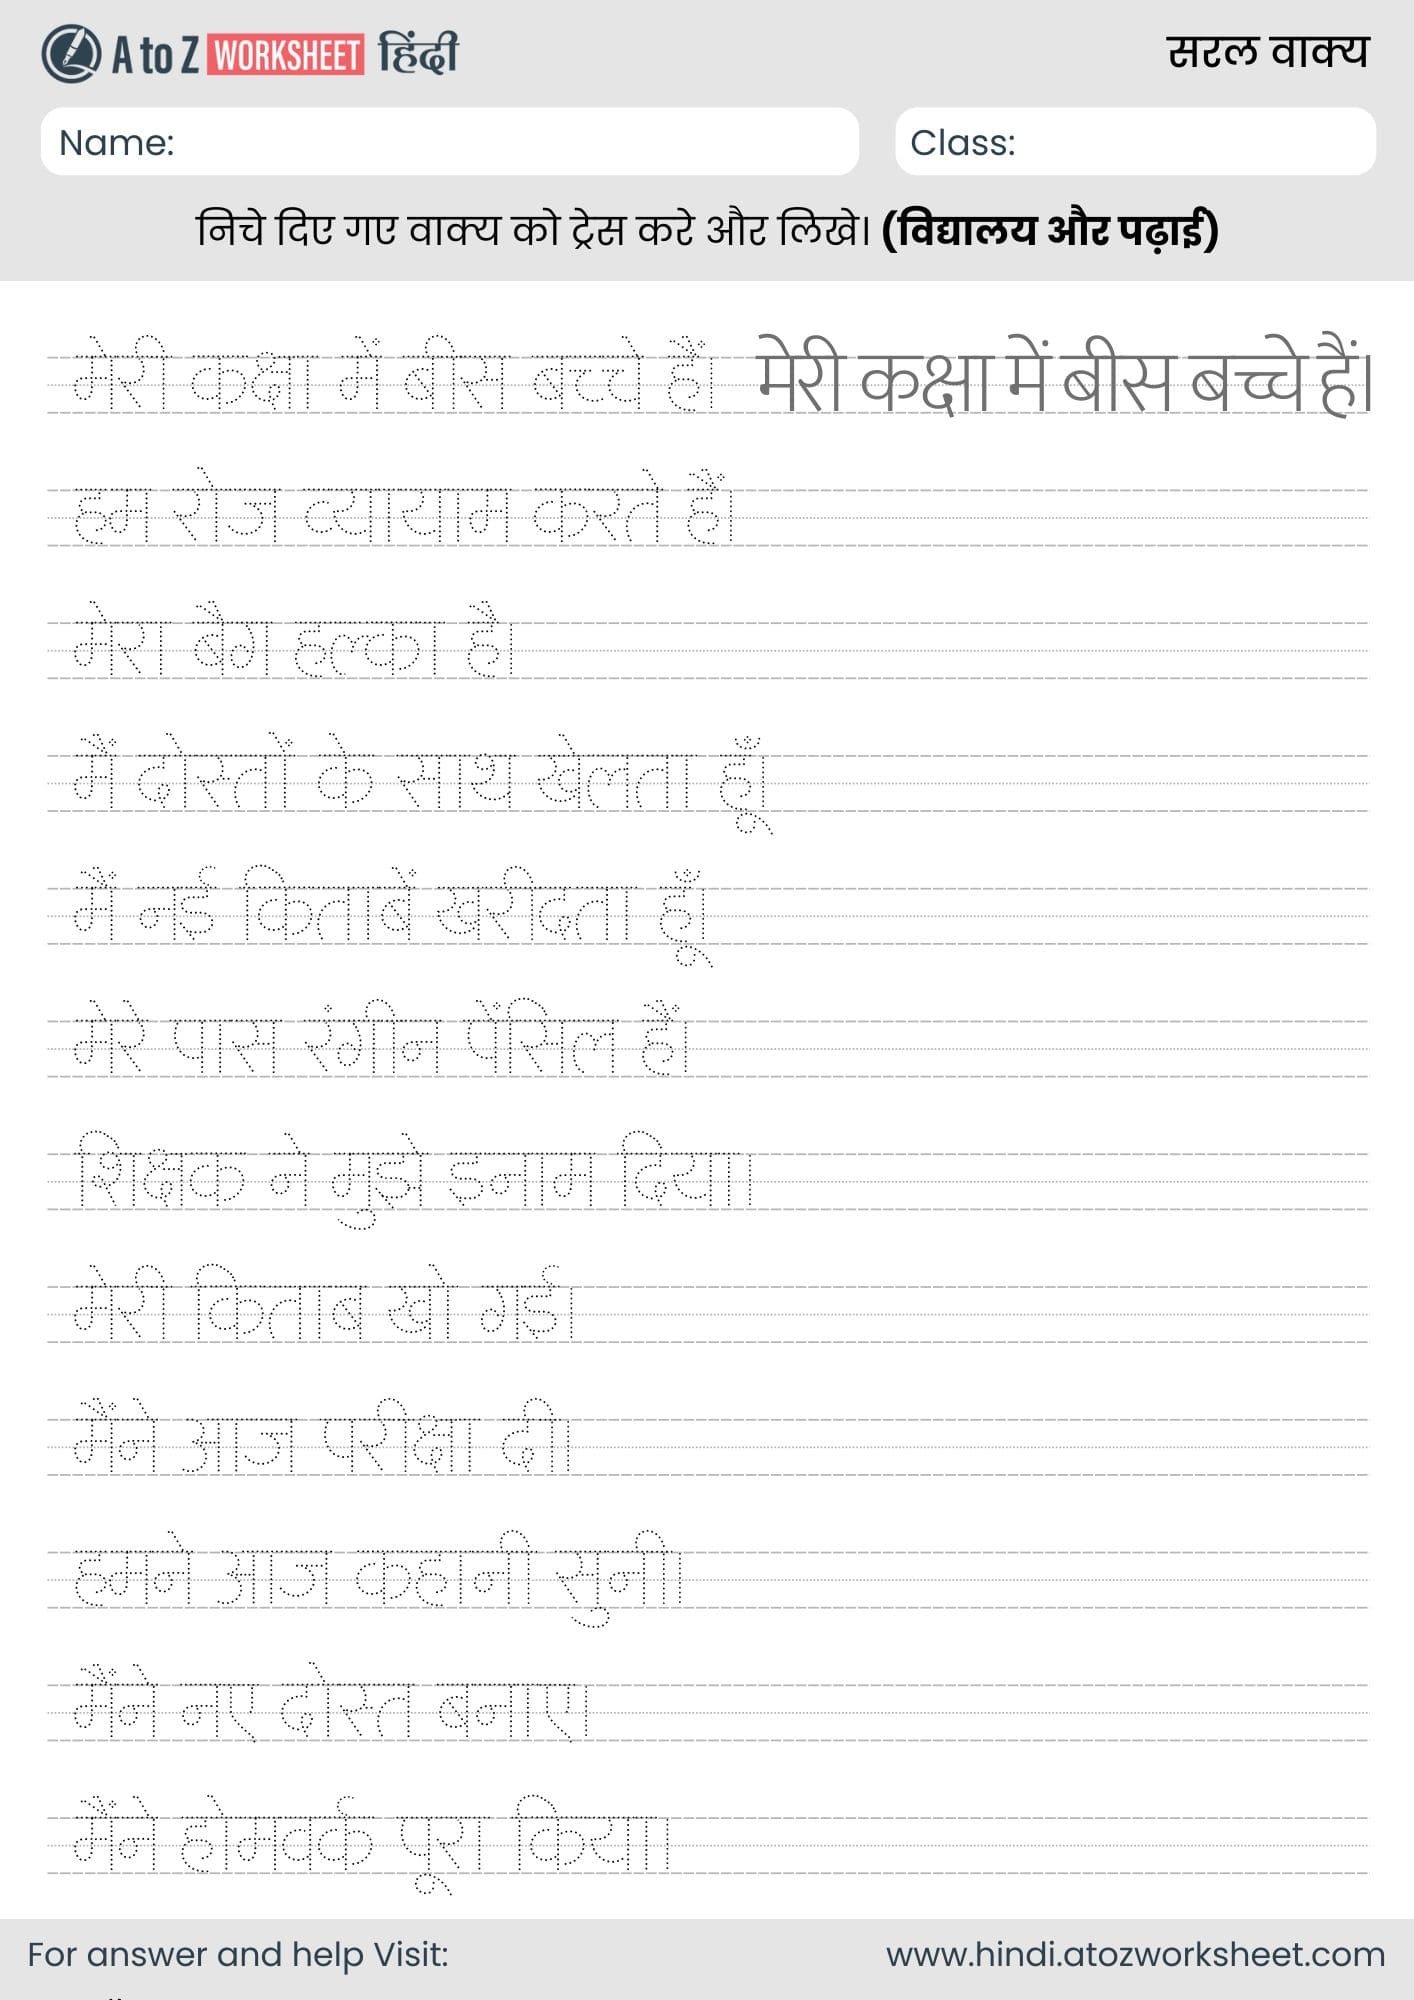 A to Z WORKSHEET हिंदी
सरल वाक्य
Name:
Class:
निचे दिए गए वाक्य को ट्रेस करे और लिखे। (विद्यालय और पढ़ाई)
मेरी कक्षा में बीस बच्चे हैं। मेरी कक्षा में बीस बच्चे हैं।
हम रोज व्यायाम करते हैं।
मेरा बैग हल्का है।
मैं दोस्तों के साथ खेलता हूँ।
मैं नई किताबें खरीदता हूँ।
मेरे पास रंगीन पेंसिल हैं।
शिक्षक ने मुझे इनाम दिया।
मेरी किताब खो गई।
मैंने आज परीक्षा दी।
हमने आज कहानी सुनी।
मैंने नए दोस्त बनाए।
मैंने होमवर्क पूरा किया।
For answer and help Visit:
www.hindi.atozworksheet.com